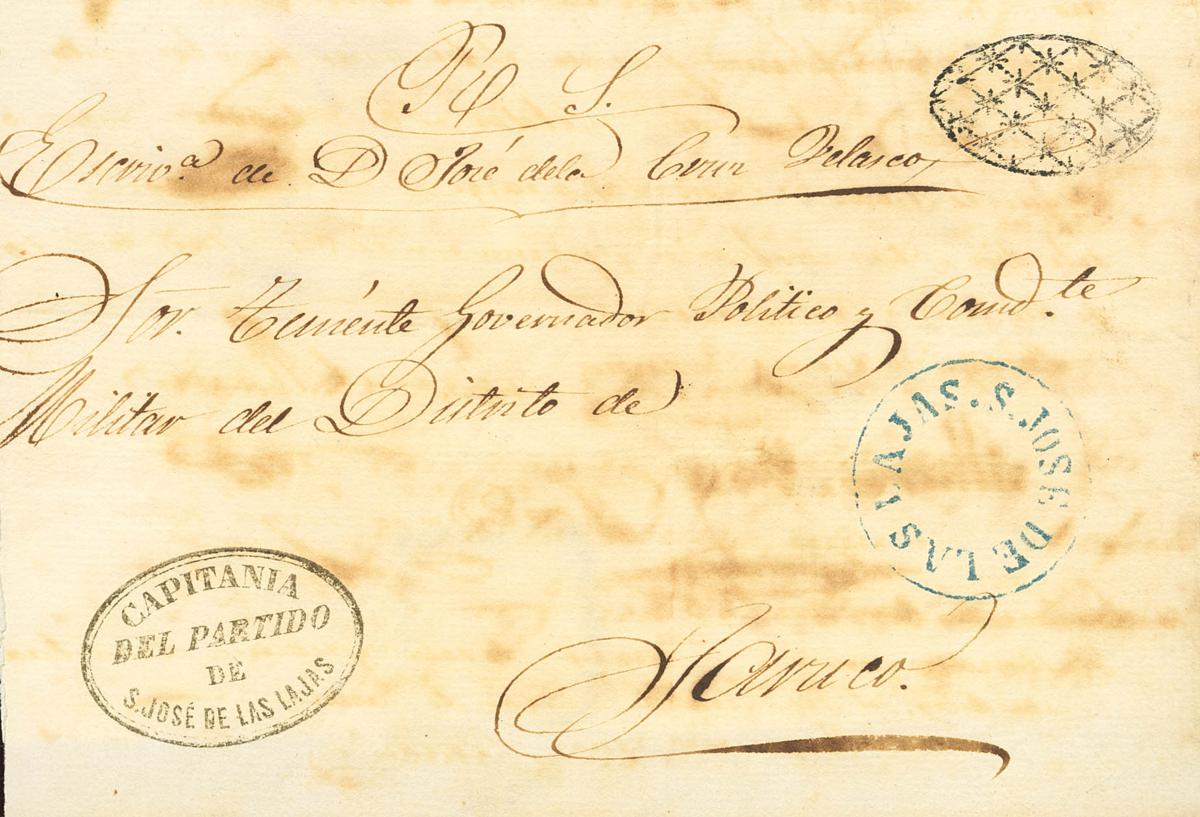 R S.
Escriv.ª de D José dela Cruz Velasco
Sor. Teniénte Governador Politico y Comd.te
Militar del Distrito de
S. JOSE DE LAS LAJAS.
Jaruco.
CAPITANIA
DEL PARTIDO
DE
S. JOSÉ DE LAS LAJAS